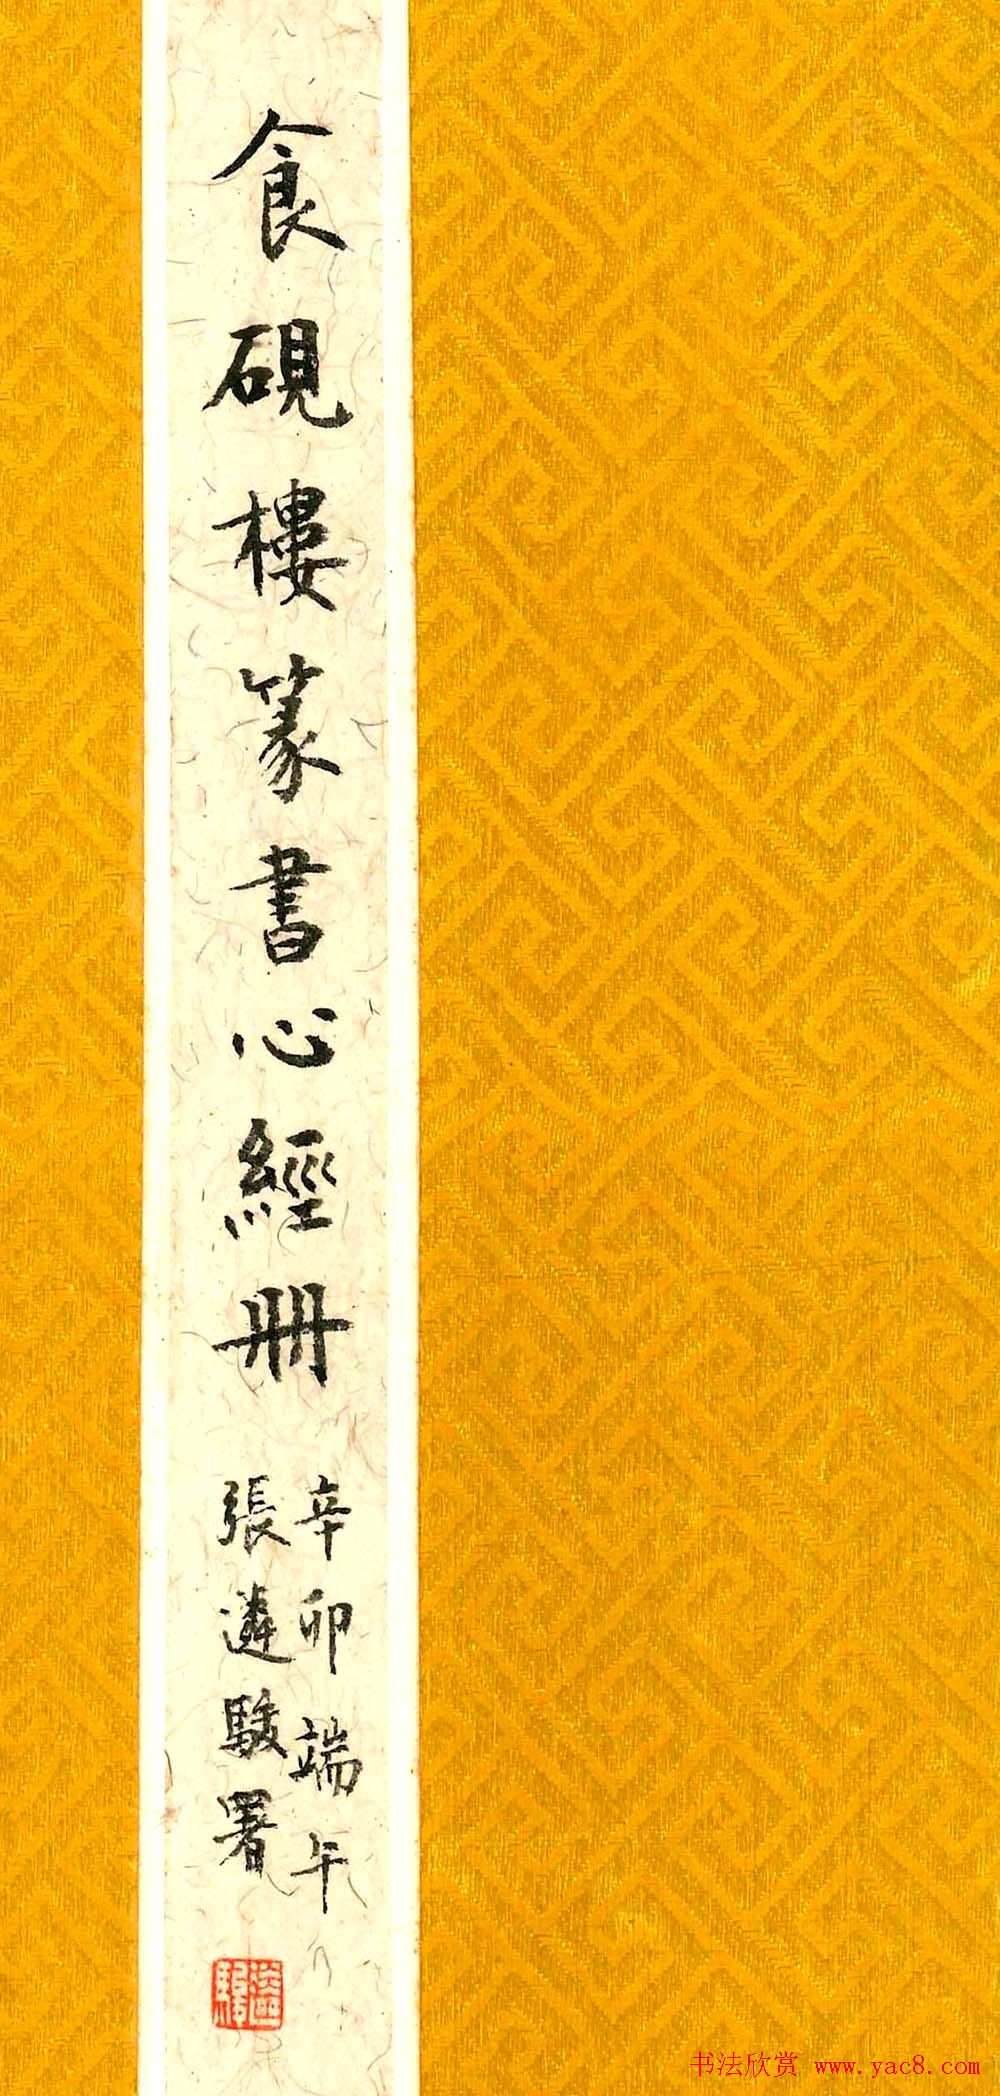 食硯樓篆書心經冊
辛卯端午
張遴駿署
遴駿
书法欣赏 www.yac8.com